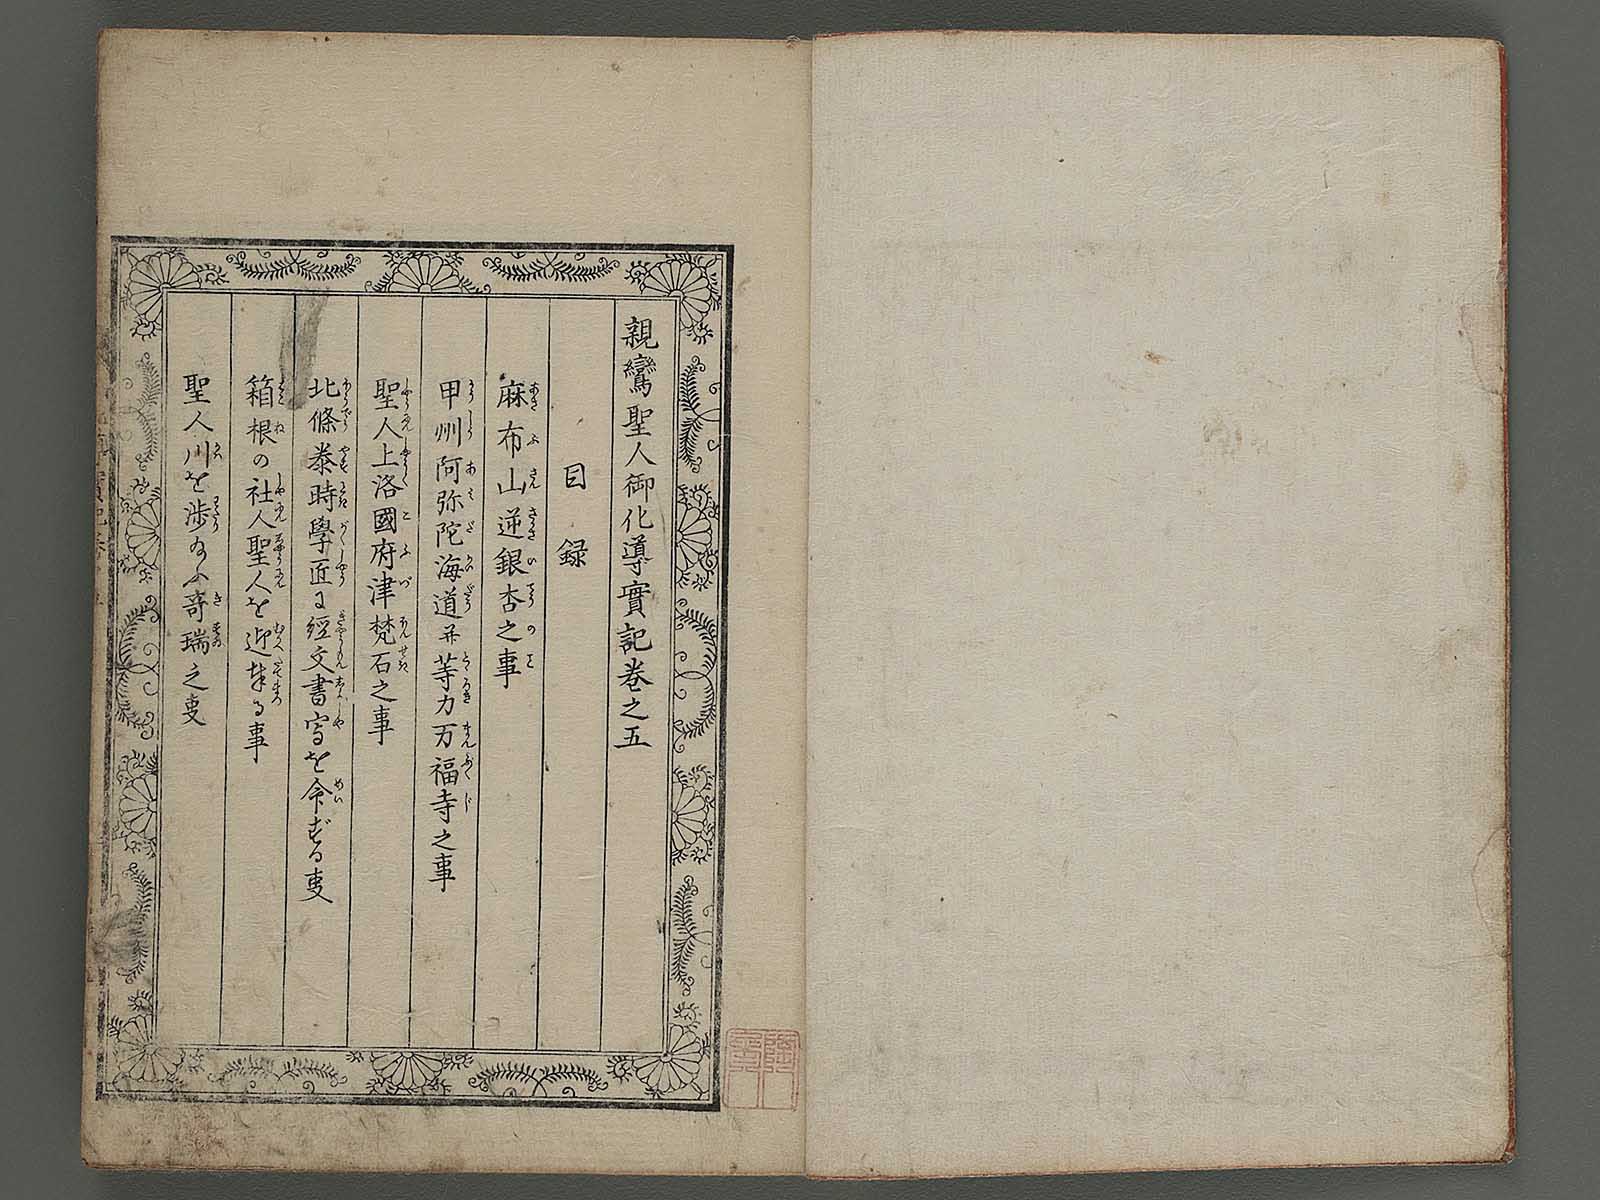 親鸞聖人御化導實記巻之五
目録
麻布山逆銀杏之事
甲州阿弥陀海道并等力万福寺之事
聖人上洛國府津梵石之事
北條泰時學匠に経文書写を命ずる叓
箱根の社人聖人を迎奉る事
聖人川を渉給ふ奇瑞之叓